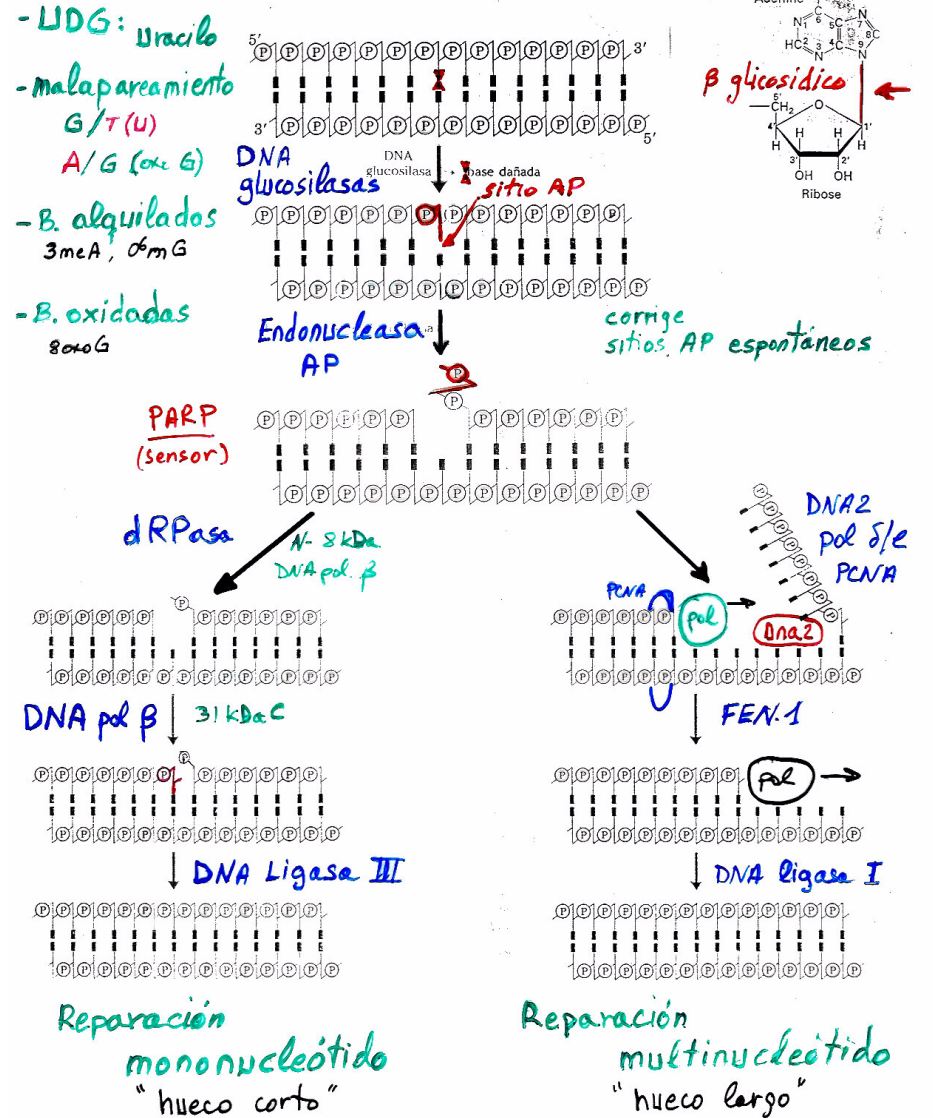 - UDG: Uracilo
- malapareamiento
G/T(U)
A/G (oxe G)
- B. alquilados
3meA, O6mG
- B. oxidadas
8oxoG
5'
3'
3'
5'
DNA
glucosilasas
DNA
glucosilasa
base dañada
sitio AP
β glicosídico
Adenine
N
6
5
7
N
1
HC
2
3
N
4
8
C
9
N
5'
CH2
O
4'
1'
H
H
H
H
3'
2'
OH
OH
Ribose
Endonucleasa
AP
corrige
sitios AP espontáneos
PARP
(sensor)
dRPasa
N- 8 kDa
DNA pol. β
DNA2
pol δ/e
PCNA
PCNA
pol
Dna2
DNA pol β
31 kDa C
FEN.1
pol
DNA Ligasa III
DNA ligasa I
Reparación
mononucleótido
"hueco corto"
Reparación
multinucleótido
"hueco largo"